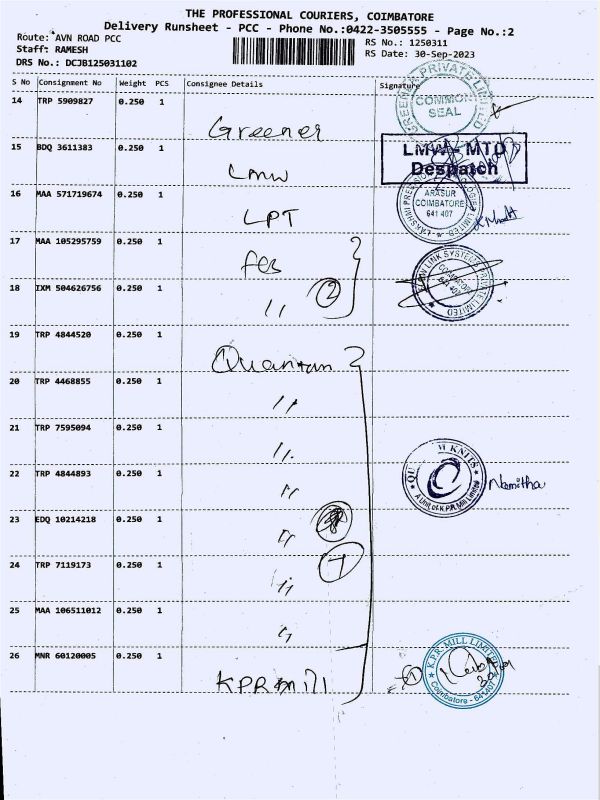 THE PROFESSIONAL COURIERS, COIMBATORE
Delivery Runsheet - PCC - Phone No.:0422-3505555 - Page No.:2
Route: AVN ROAD PCC
RS No.: 1250311
Staff: RAMESH
RS Date: 30-Sep-2023
DRS No.: DCJB125031102
S No Consignment No Weight PCS Consignee Details Signature
14 TRP 5909827 0.250 1
Greener
COMMON SEAL
15 BDQ 3611383 0.250 1
LMW
LMW - MTD
Despatch
16 MAA 571719674 0.250 1
LPT
ARASUR
COIMBATORE
641 407
17 MAA 105295759 0.250 1
18 IXM 504626756 0.250 1
〃 2
LINK SYSTEMS PRIVATE LIMITED
COIMBATORE
641 407
19 TRP 4844520 0.250 1
Quantum
20 TRP 4468855 0.250 1
〃
21 TRP 7595094 0.250 1
〃
22 TRP 4844893 0.250 1
〃
KNITS
A Unit of K.P.R. Mill Limited
Namitha
23 EDQ 10214218 0.250 1
〃
24 TRP 7119173 0.250 1
〃 7
25 MAA 106511012 0.250 1
〃
26 MNR 60120005 0.250 1
KPR mill
K.P.R. MILL LIMITED
Coimbatore - 641407